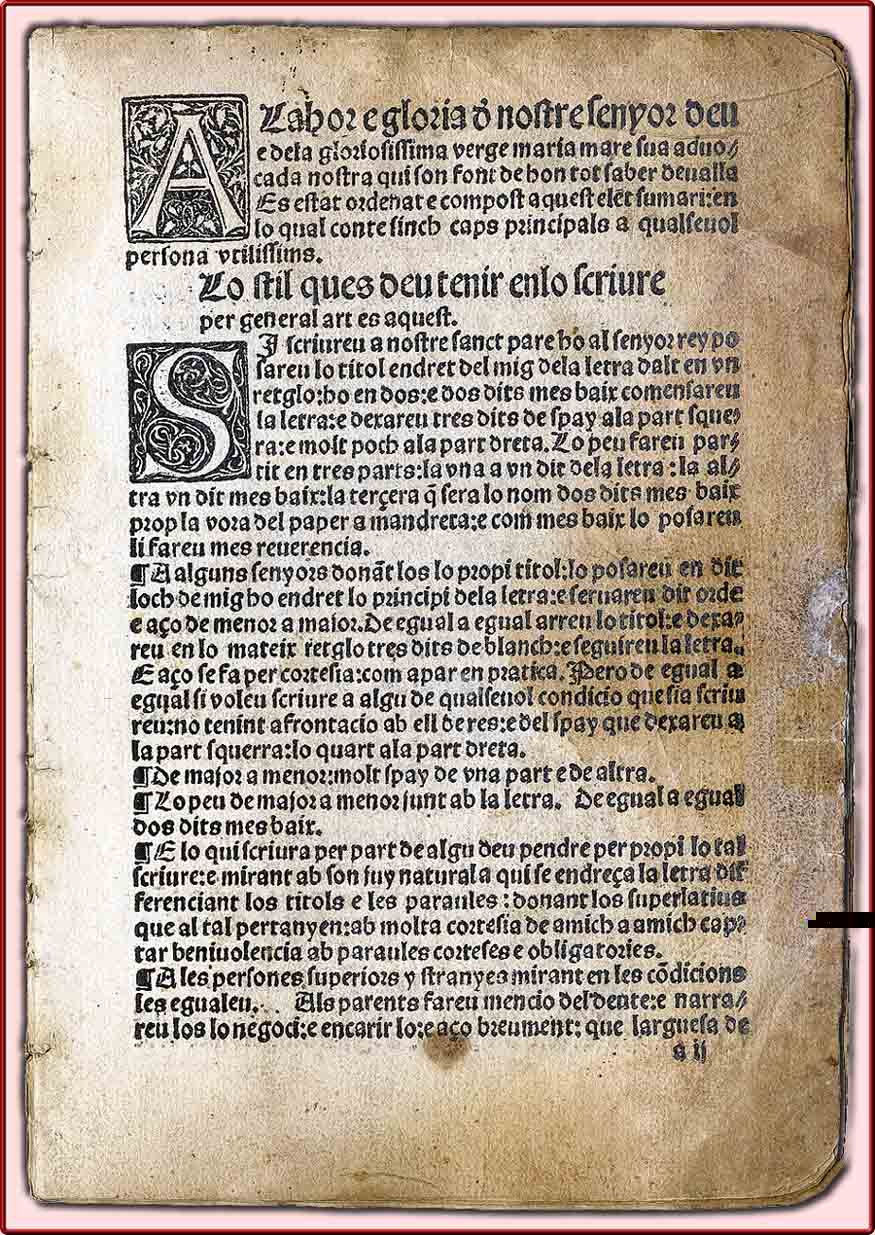 A Lahor e gloria đ nostre senyor deu
e dela gloriosissima verge maria mare sua aduo/
cada nostra qui son font de hon tot saber deualla
Es estat ordenat e compost aquest elẽt sumari:en
lo qual conte sinch caps principals a qualseuol
persona vtilissims.
Lo stil ques deu tenir enlo scriure
per general art es aquest.
SI scriureu a nostre sanct pare ho al senyor rey po
sareu lo titol endret del mig dela letra dalt en vn
retglo:ho en dos:e dos dits mes baix comensareu
la letra:e dexareu tres dits de spay ala part sque/
ra:e molt poch ala part dreta. Lo peu fareu par/
tit en tres parts:la vna a vn dit dela letra : la al/
tra vn dit mes baix:la terçera q̃ sera lo nom dos dits mes baix
prop la vora del paper a mandreta:e com mes baix lo posareu
li fareu mes reuerencia.
¶A alguns senyors donãt los lo propi titol:lo posareu en dit
loch de mig ho endret lo principi dela letra:e seruareu dit orde
e aço de menor a maior. De egual a egual arreu lo titol:e dexa/
reu en lo mateix retglo tres dits de blanch:e seguireu la letra.
E aço se fa per cortesia:com apar en pratica. Pero de egual a
egual si voleu scriure a algu de qualseuol condicio que sia scriu
reu:no tenint afrontacio ab ell de res:e del spay que dexareu a
la part squerra:lo quart ala part dreta.
¶De maior a menor:molt spay de vna part e de altra.
¶Lo peu de maior a menor iunt ab la letra. De egual a egual
dos dits mes baix.
¶E lo qui scriura per part de algu deu pendre per propi lo tal
scriure:e mirant ab son juy natural a qui se endreça la letra dif
ferenciant los titols e les paraules : donant los superlatius
que al tal pertanyen:ab molta cortesia de amich a amich cap/
tar beniuolencia ab paraules corteses e obligatories.
¶A les persones superiors y stranyes mirant en les cõdicions
les egualeu. Als parents fareu mencio del dente:e narra/
reu los lo negoci:e encarir lo:e aço breument: que larguesa de
a ij